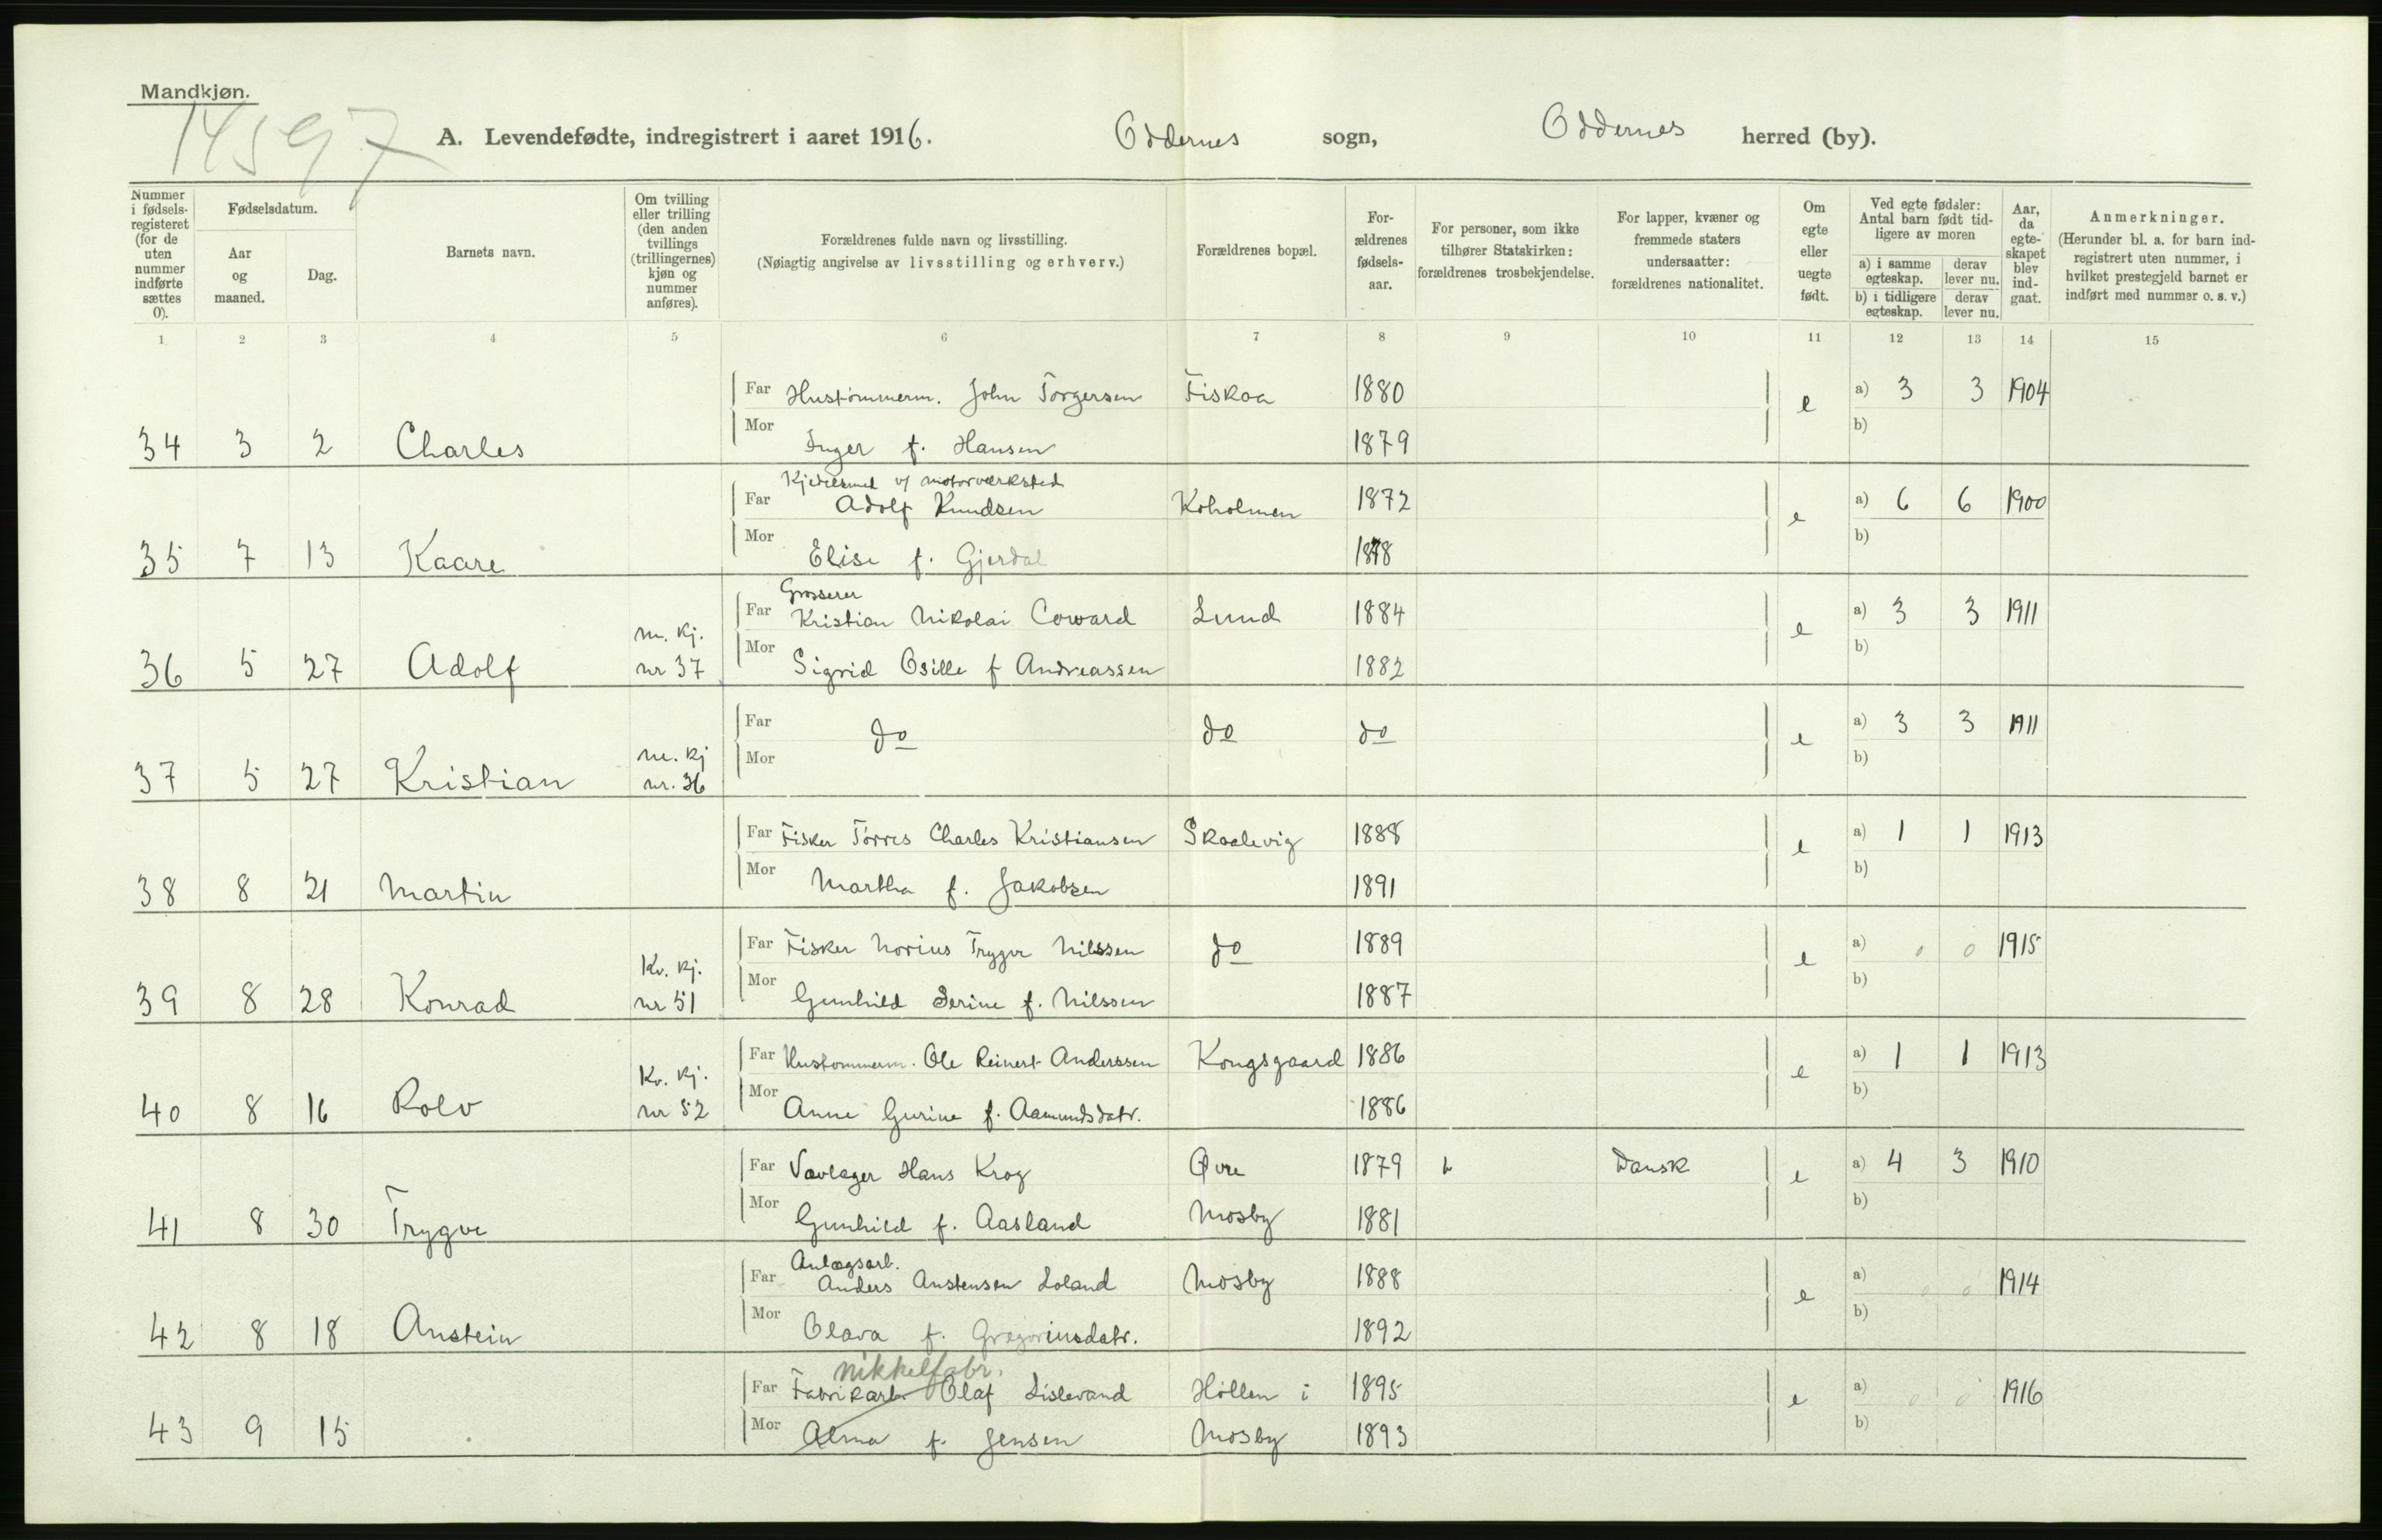 Mandkjøn.
14597
A. Levendefødte, indregistrert i aaret 1916. Oddernes sogn, Oddernes herred (by).
Nummer i fødsels-registeret (for de uten nummer indførte sættes 0).
Fødselsdatum.
Aar og maaned.
Dag.
Barnets navn.
Om tvilling eller trilling (den anden tvillings (trillingernes) kjøn og nummer anføres).
Forældrenes fulde navn og livsstilling.
(Nøiagtig angivelse av livsstilling og erhverv.)
Forældrenes bopæl.
For-ældrenes fødsels-aar.
For personer, som ikke tilhører Statskirken: forældrenes trosbekjendelse.
For lapper, kvæner og fremmede staters undersaatter: forældrenes nationalitet.
Om egte eller uegte født.
Ved egte fødsler: Antal barn født tid-ligere av moren
a) i samme egteskap. derav lever nu.
b) i tidligere egteskap. derav lever nu.
Aar, da egte-skapet blev ind-gaat.
Anmerkninger.
(Herunder bl. a. for barn ind-registrert uten nummer, i hvilket prestegjeld barnet er indført med nummer o. s. v.)
1 2 3 4 5 6 7 8 9 10 11 12 13 14 15
Far Hustømmerm. John Torgersen Fiskaa 1880 e a) 3 3 1904
34 3 2 Charles Mor Inger f. Hansen 1879 b)
Kjedelsmed v/ motorværksted
Far Adolf Knudsen Koholmen 1872 e a) 6 6 1900
35 7 13 Kaare Mor Elise f. Gjerdal 1878 b)
Grosserer
Far Kristian Nikolai Coward Lund 1884 e a) 3 3 1911
m. kj.
36 5 27 Adolf nr 37 Mor Sigrid Osille f Andreassen 1882 b)
Far do do do e a) 3 3 1911
m. kj
37 5 27 Kristian nr. 36 Mor b)
Far Fisker Tørres Charles Kristiansen Skaalevig 1888 e a) 1 1 1913
38 8 21 Martin Mor Martha f. Jakobsen 1891 b)
Far Fisker Norius Trygve Nilssen do 1889 e a) 0 0 1915
Kv. kj.
39 8 28 Konrad nr 51 Mor Gunhild Serine f. Nilssen 1887 b)
Far Hustømmerm. Ole Reinert Anderssen Kongsgaard 1886 e a) 1 1 1913
Kv. kj.
40 8 16 Rolv nr 52 Mor Anne Gurine f. Aamundsdatr. 1886 b)
Far Vævlager Hans Krog Øvre 1879 Dansk e a) 4 3 1910
41 8 30 Trygve Mor Gunhild f. Aasland Mosby 1881 b)
Anlægsarb.
Far Anders Austensen Loland Mosby 1888 e a) 0 0 1914
42 8 18 Anstein Mor Olava f. Gregoriusdatr. 1892 b)
nikkelfabr.
Far Fabrikarb. Olaf Lislevand Höllen i 1895 e a) 0 0 1916
43 9 15 Mor Alma f. Jensen Mosby 1893 b)